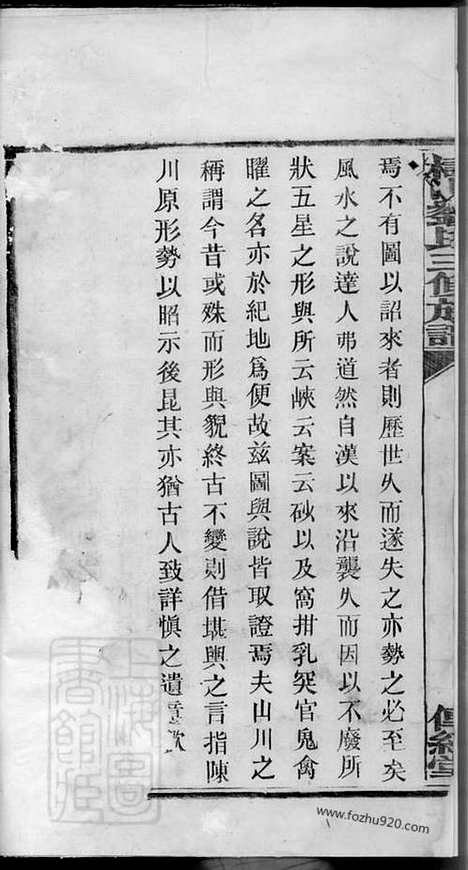 劉氏三修族譜
傳經堂
焉不有圖以詔來者則歷世久而遂失之亦勢之必至矣
風水之說達人弗道然自漢以來沿襲久而因以不廢所
狀五星之形與所云峽云案云砂以及窩拑乳突官鬼禽
曜之名亦於紀地爲便故兹圖與說皆取證焉夫山川之
稱謂今昔或殊而形與貌終古不變則借堪輿之言指陳
川原形勢以昭示後昆其亦猶古人致詳愼之遺意歟
上海圖書館藏
www.fozhu920.com